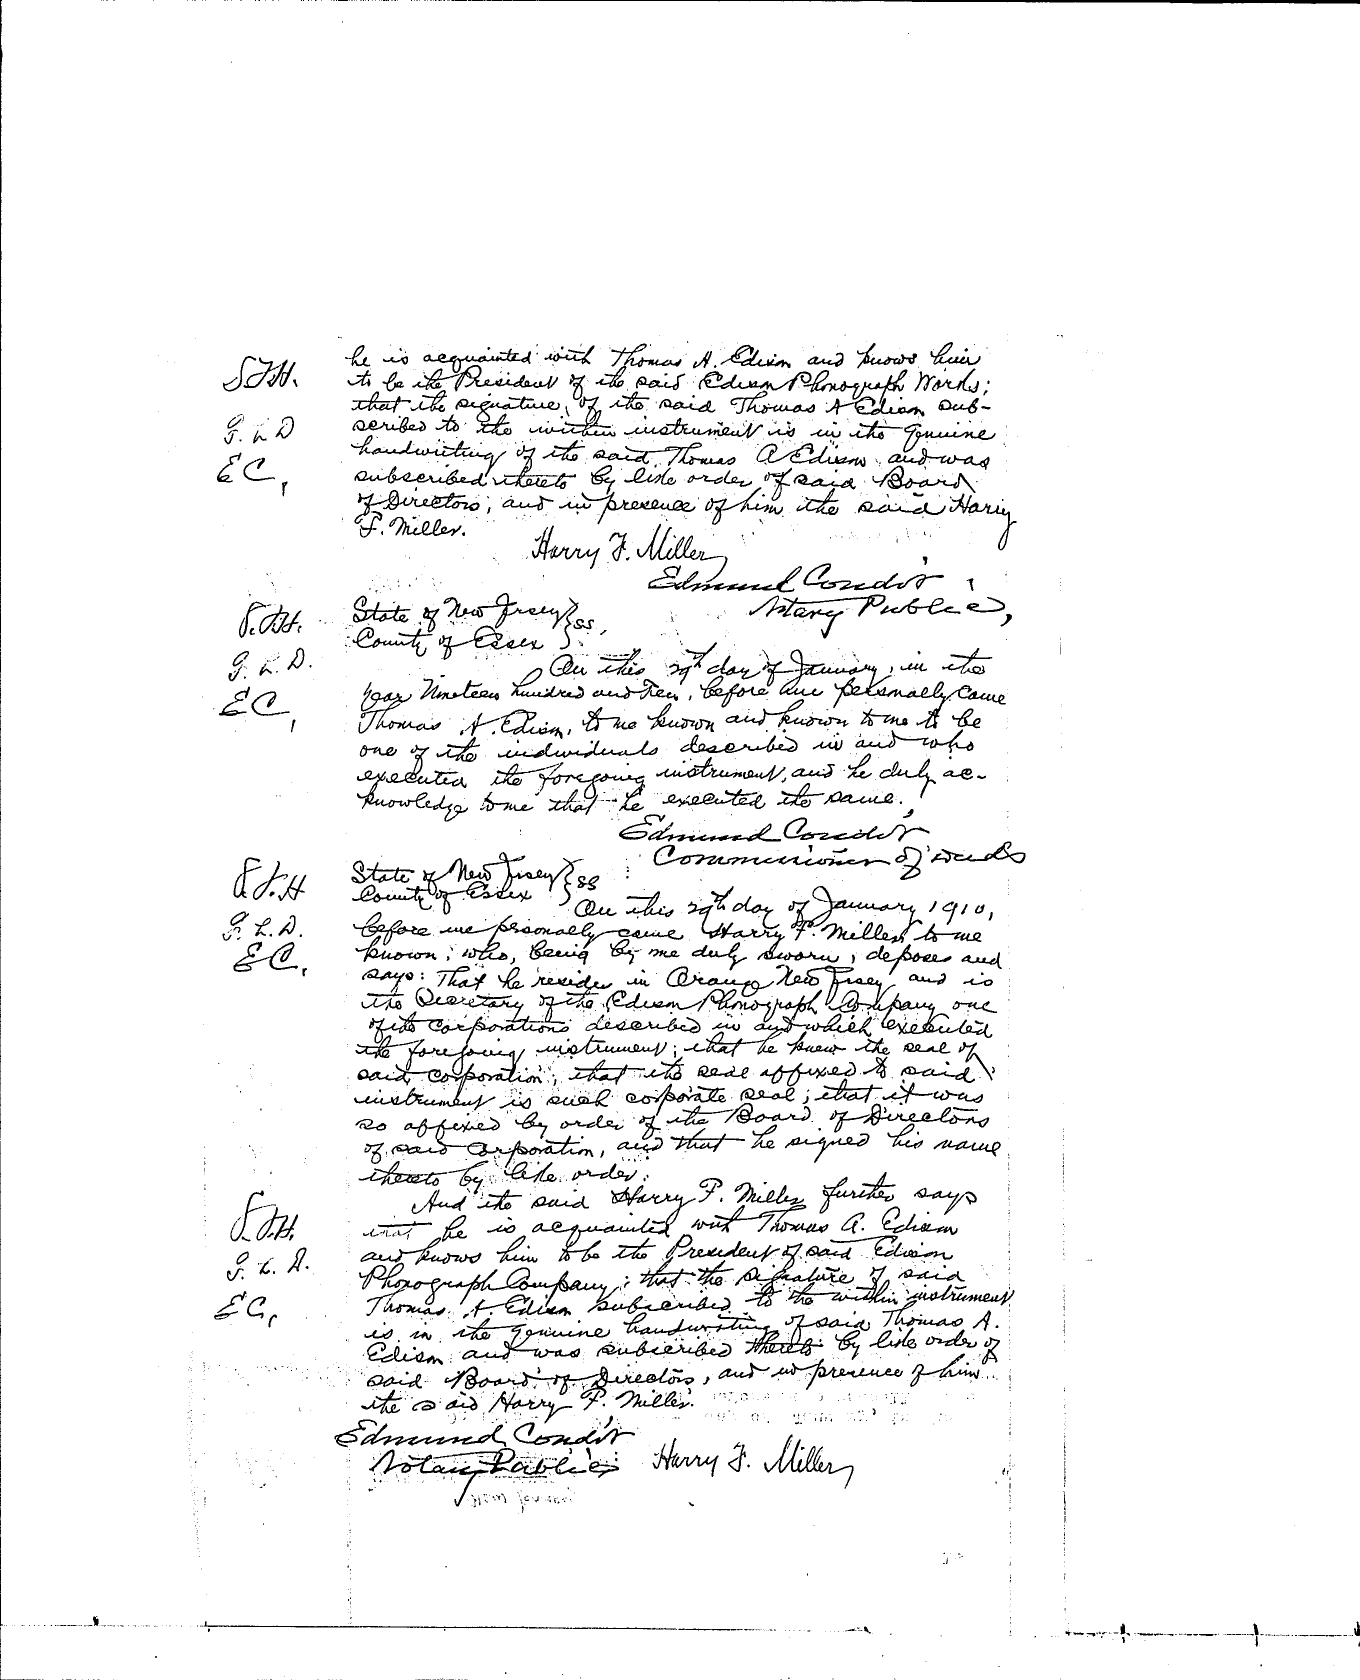 he is acquainted with Thomas A. Edison and knows him
S.F.H. to be the President of the said Edison Phonograph Works;
that the signature, of the said Thomas A Edison sub-
G. L. D scribed to the within instrument is in the genuine
handwriting of the said Thomas A Edison and was
EC, subscribed thereto by like order of said Board
of Directors, and in presence of him the said Harry
F. Miller.
Harry F. Miller
Edmund Condit
Notary Public,
S.F.H. State of New Jersey } ss.
County of Essex
G. L. D. On this 29th day of January, in the
EC, year Nineteen hundred and Ten, before me personally came
Thomas A. Edison, to me known and known to me to be
one of the individuals described in and who
executed the foregoing instrument, and he duly ac-
knowledge to me that he executed the same.
Edmund Condit
Commissioner of Deeds
S.F.H State of New Jersey } ss
County of Essex
On this 29th day of January 1910,
G. L. D. before me personally came Harry F. Miller to me
EC, known; who, being by me duly sworn, deposes and
says: That he resides in Orange New Jersey and is
the Secretary of the Edison Phonograph Company one
of the corporations described in and which executed
the foregoing instrument; that he knew the seal of
said corporation; that the seal affixed to said
instrument is such corporate seal; that it was
so affixed by order of the Board of Directors
of said Corporation, and that he signed his name
thereto by like order.
And the said Harry F. Miller further says
S.F.H. that he is acquainted with Thomas A. Edison
and knows him to be the President of said Edison
G. L. D. Phonograph Company; that the signature of said
EC, Thomas A. Edison subscribed to the within instrument
is in the genuine handwriting of said Thomas A.
Edison and was subscribed thereto by like order of
said Board of Directors, and in presence of him
the said Harry F. Miller.
Edmund Condit
Notary Public Harry F. Miller